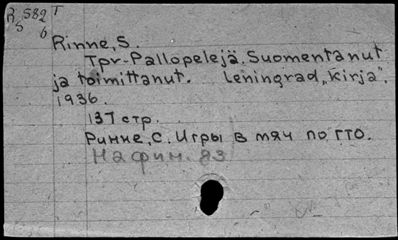 R 582 T
5 6
Rinne, S.
Tpv-Pallopelejä. Suomentanut
ja toimittanut. Leningrad, „Kirja",
1936.
137 стр.
Ринне, С. Игры в мяч по ГТО.
На фин. яз